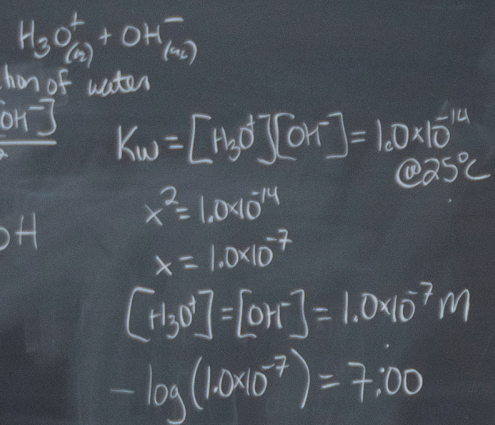 H₃O⁺(aq) + OH⁻(aq)
tion of water
[OH⁻]
Kw = [H₃O⁺][OH⁻] = 1.0×10⁻¹⁴
@25°C
x² = 1.0×10⁻¹⁴
OH
x = 1.0×10⁻⁷
[H₃O⁺] = [OH⁻] = 1.0×10⁻⁷ M
- log (1.0×10⁻⁷) = 7.00